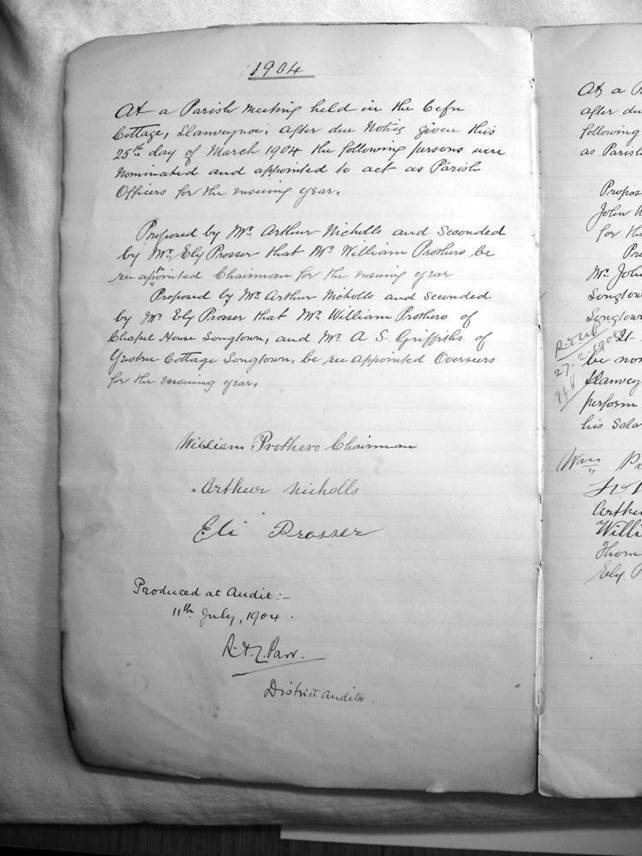 1904
At a Parish meeting held in the Cefn
Cottage, Llanveynoe, after due Notice given this
25th day of March 1904 the following persons were
nominated and appointed to act as Parish
Officers for the ensuing year.
Proposed by Mr. Arthur Nicholls and Seconded
by Mr. Ely Prosser that Mr. William Prothero be
re appointed Chairman for the ensuing year
Proposed by Mr. Arthur Nicholls and Seconded
by Mr. Ely Prosser that Mr. William Prothero of
Chapel House Longtown, and Mr A S. Griffiths of
Cottage Longtown, be re appointed Overseers
for the ensuing year.
William Prothero Chairman
Arthur Nicholls
Eli Prosser
Produced at Audit:-
11th July, 1904.
Parr.
District Auditor.
At a
after du
following
as Parish
Propos
John
for the
Mr. John
Longtow
Longtown
be nom
Llanvey
perform
his Sala
Wm Pr
Arthu
Willi
Thom
Ely P